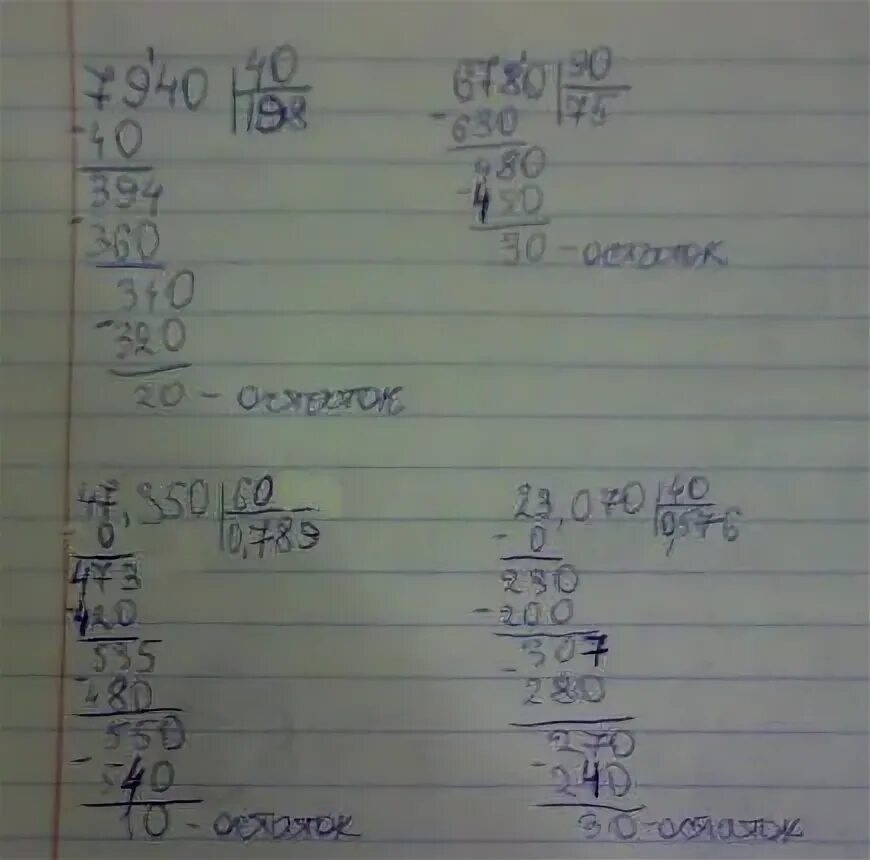 7940 40
40 198
394
360
340
320
20 - остаток
6780 90
630 75
480
450
30 - остаток
47,350 60
0 0,789
473
420
535
480
550
540
10 - остаток
23,070 40
- 0 0,576
230
- 200
307
- 280
270
- 240
30 - остаток